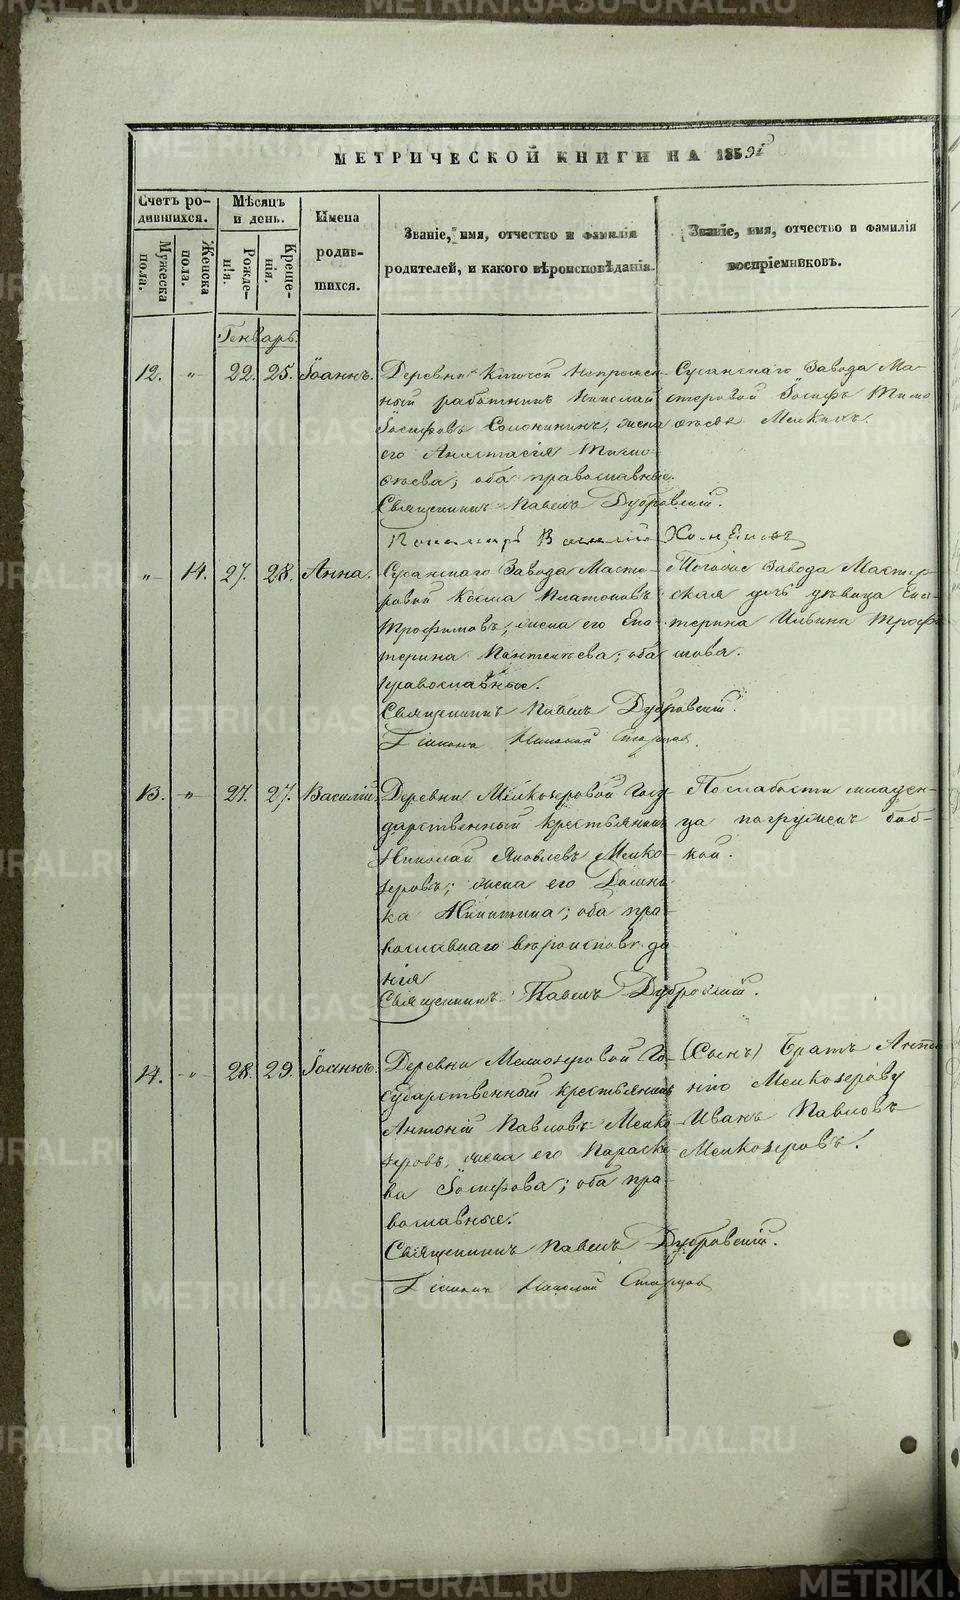 METRIKI.GASO-URAL.RU
МЕТРИЧЕСКОЙ КНИГИ НА 1859й
Счетъ ро-
дившихся.
Мужеска
пола.
Женска
пола.
Мѣсяцъ
и день.
Рожде-
нія.
Креще-
нія.
Имена
родив-
шихся.
Званіе, имя, отчество и фамилія
родителей, и какого вѣроисповѣданія.
Званіе, имя, отчество и фамилія
воспріемниковъ.
Генварь.
12. „ 22. 25. Іоаннъ.
Деревни Ключей Непремѣн-
ный работникъ Николай
Іосифовъ Солонинин, жена
его Анастасія Тимо-
ѳеева; оба православные.
Священникъ Павелъ Дубровскій.
Пономарь Василій
Сусанскаго Завода Ма-
стеровой Іосифъ Тимо
ѳеевъ Мелкихъ.
„ 14. 27. 28. Анна.
Сусанскаго Завода Масте-
ровой Косма Платоновъ
Трофимовъ, жена его Ека-
терина Пантелѣева; оба
православные.
Священникъ Павелъ Дубровскій.
Діаконъ Николай Старцов
Тогоже Завода Мастер-
ская дочь дѣвица Ека-
терина Ильина Трофи
мова.
13. „ 27. 27. Василій.
Деревни Мелкозеровой Госу-
дарственный крестьянинъ
Николай Яковлевъ Мелко-
зеровъ; жена его Домни-
ка Никитина; оба пра-
вославнаго вѣроисповѣда-
нія
Священникъ Павелъ Дубровскій.
По слабости младен-
ца погруженъ баб-
кой.
14. „ 28. 29. Іоаннъ.
Деревни Мелкозеровой Го-
сударственный крестьянинъ
Антоній Павловъ Мелко-
зеровъ, жена его Параске-
ва Іосифова; оба пра-
вославные.
Священникъ Павелъ Дубровскій.
Діаконъ Николай Старцов
(Сынъ) Братъ Анто
нію Мелкозерову
Иванъ Павловъ
Мелкозеровъ.